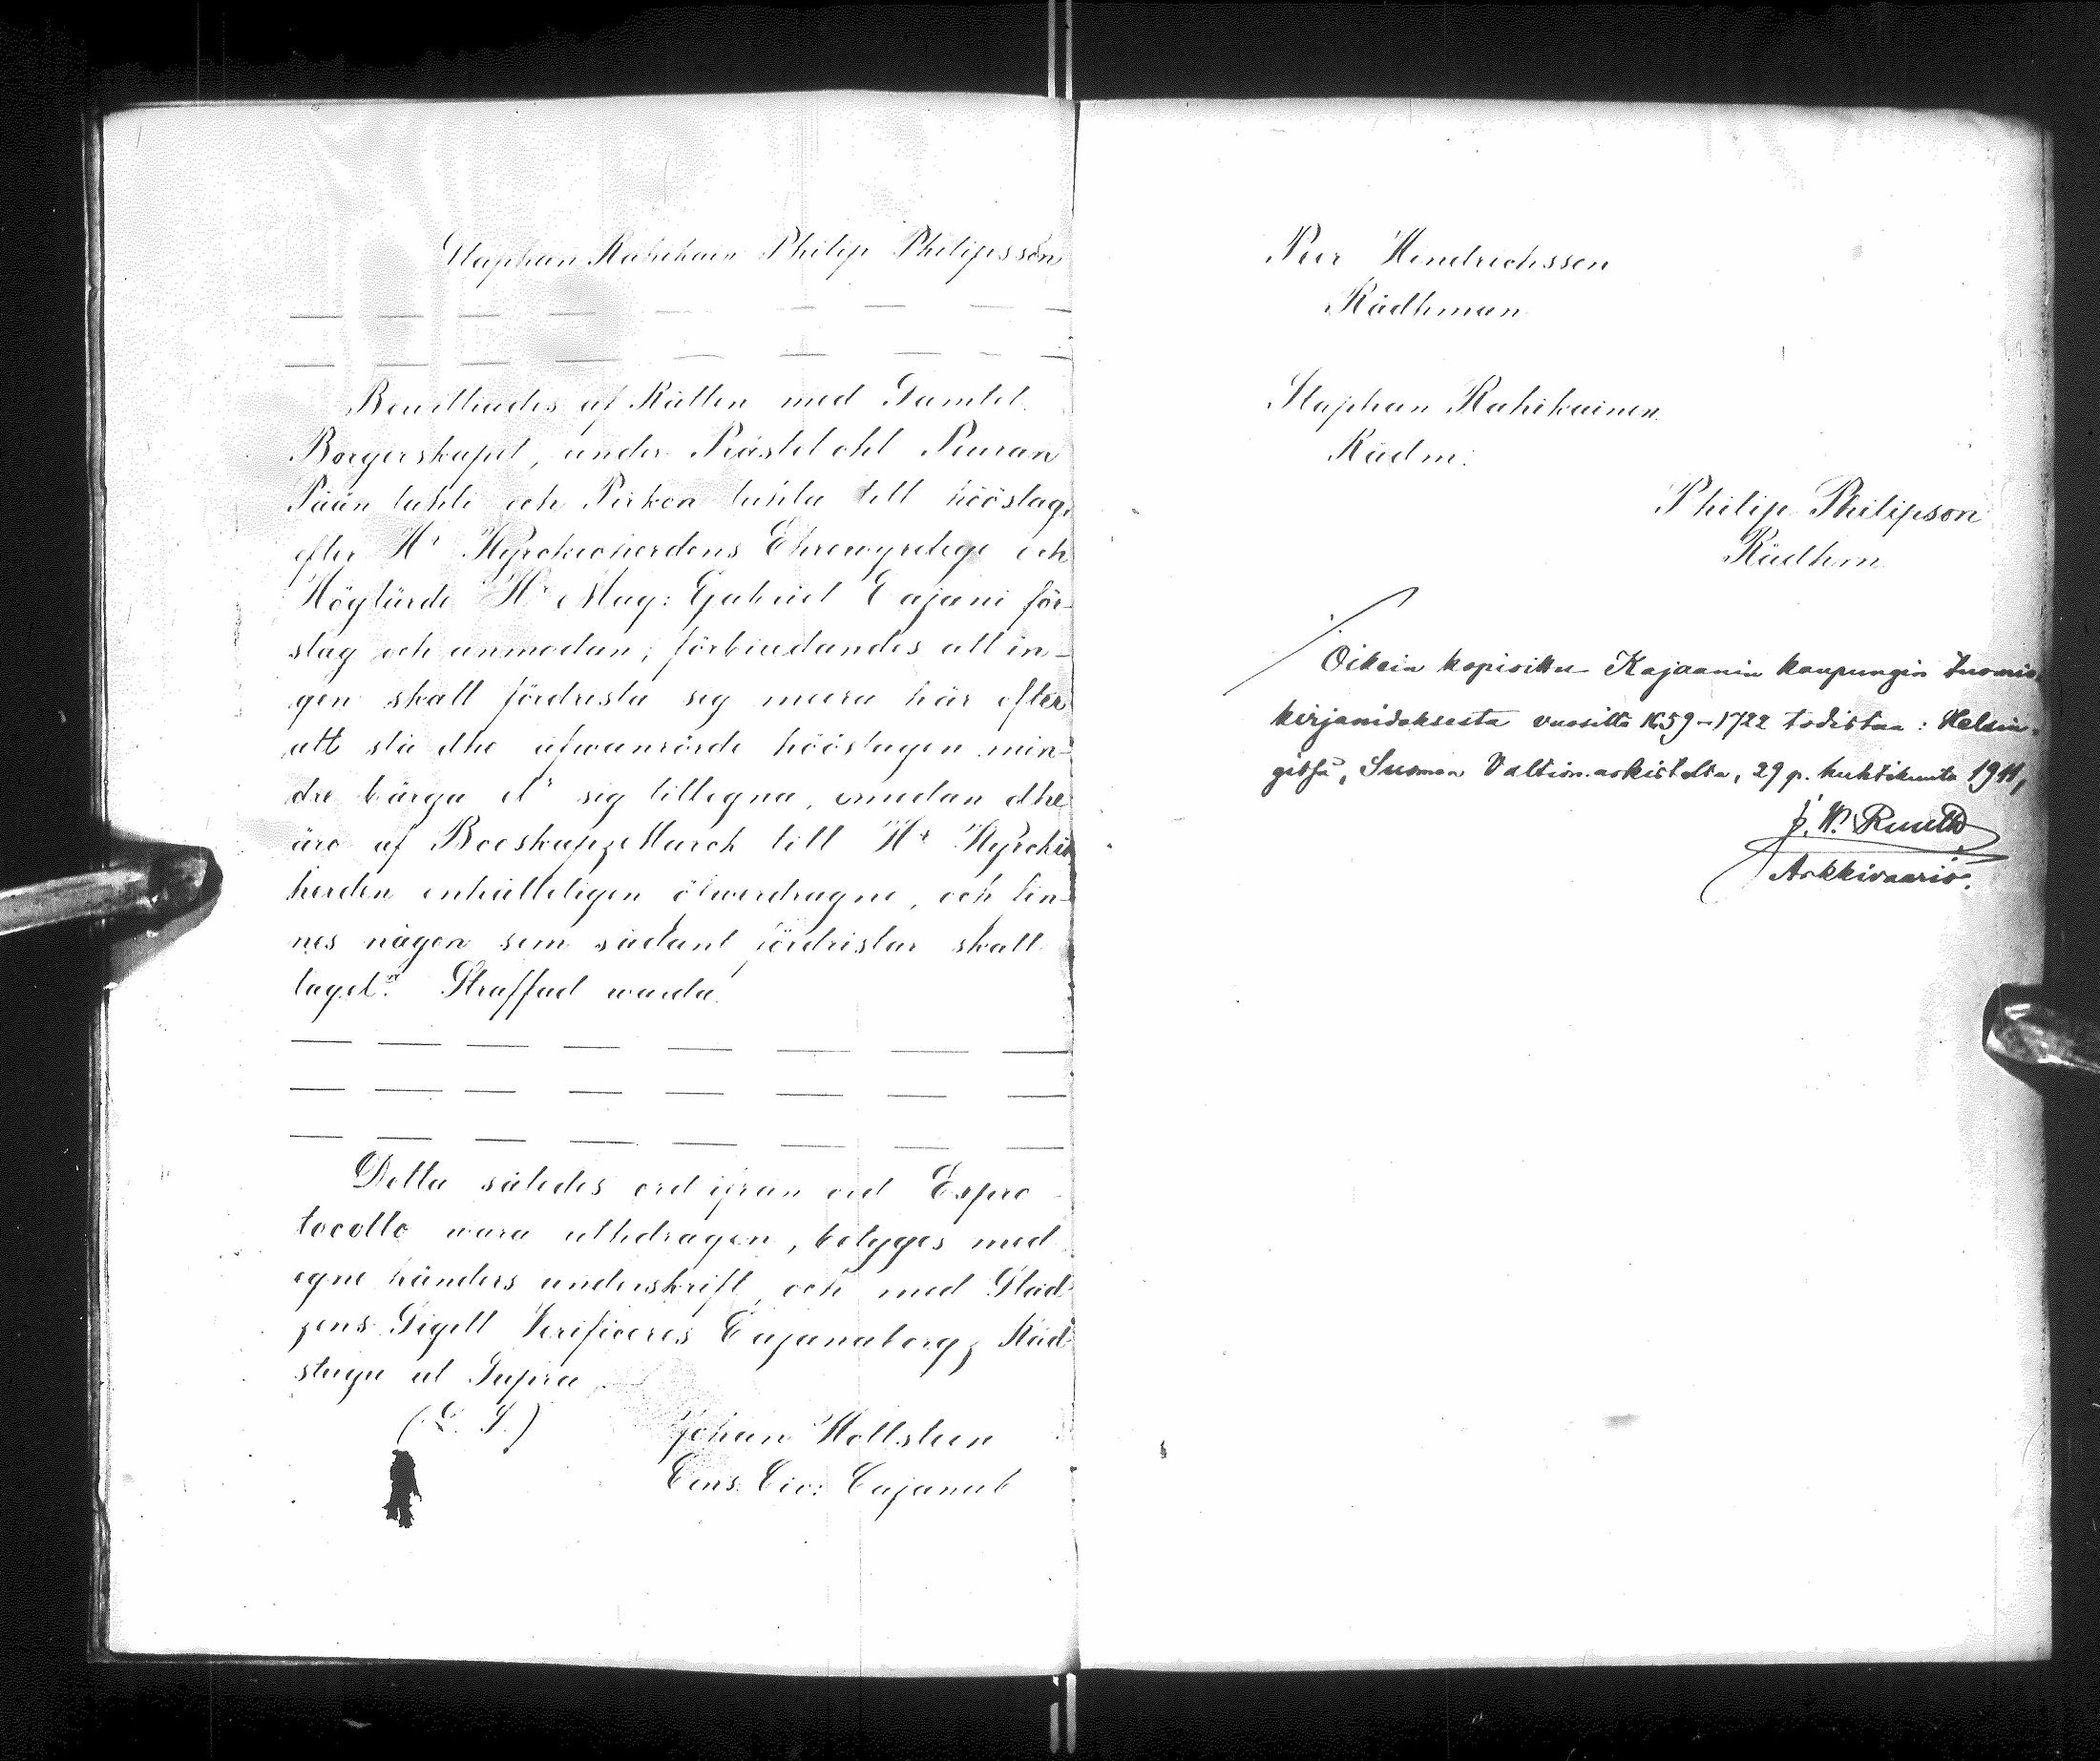 Staphan Rahikain Philip Philipsson
Bewilliades af Rätten med Samtel.
Borgerskapet, under Prästebohl Peuran
Pään lahti och Pirkon luhta till hööslag,
efter Hr Kyrckioherdens Ehrewyrdige och
Höglärde Hr Mag: Gabriel Cajani för-
slag och anmodan, förbiudandes att in-
gen skall fördrista sig meera här efter
att slå dhe ofwanrörde hööslagen min-
dre bärga elr sig tillegna, emedan dhe
äro af BooskapzMarck till Hr Kyrckio
herden enhälleligen öfwerdragne, och fin-
nes någon som sådant fördristar skall
Straffad warda.
Detta således ord ifrån ord Expro-
tocollo wara uthdragen, betyges med
egne händers underskrift, och med Stad-
zens Sigell Verificeres Cajanaborgz Råd-
stugu ut Supra
(L. S.)
Johan Hollsteen
Cons. Civ: Cajanab
Peer Hendrichsson
Rådhman
Staphan Rahikainen
Rådm:
Philip Philipson
Rådhm
Oikein kopioittu Kajaanin kaupungin tuomio-
kirjanidoksesta vuosilta 1659-1722 todistaa: Helsin-
gissä, Suomen Valtionarkistolta, 29 p. huhtikuuta 1911,
J. W. Ruuth
Arkkivaario.